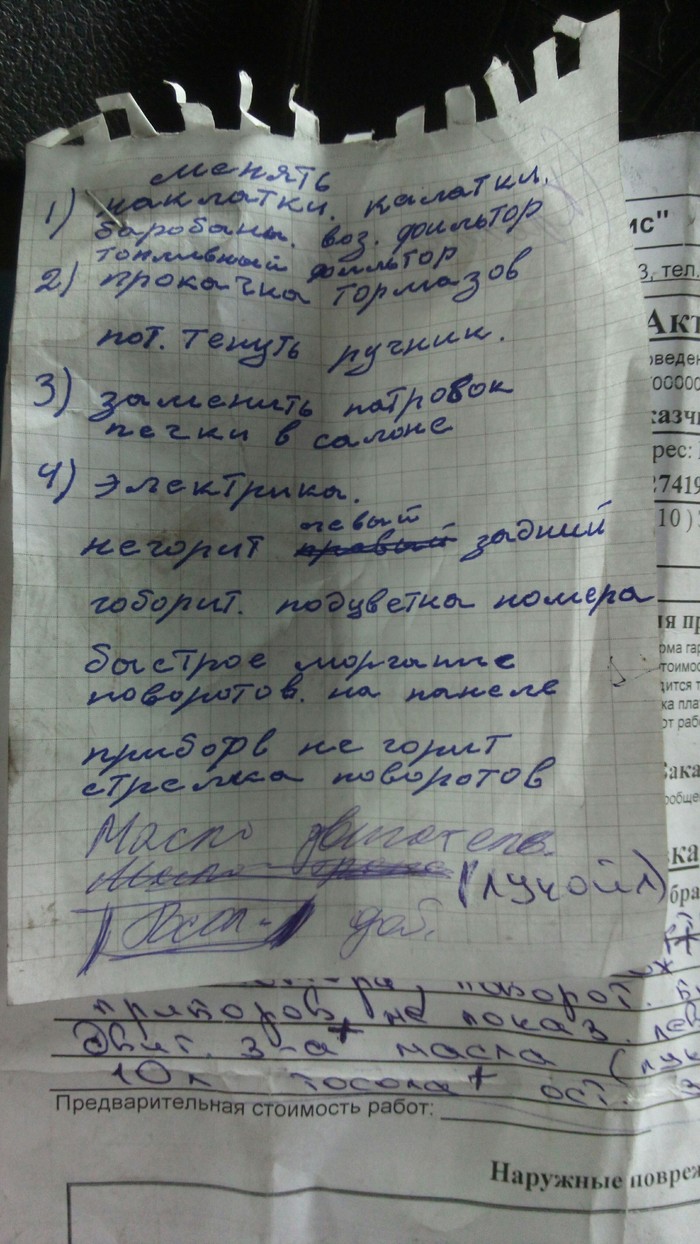 менять
1) наклатки. калатки.
барабаны. воз. фильтор
топливный фильтор
2) прокачка тормазов
пот. тенуть ручник.
3) заменить патровок
печки в салоне
4) электрика.
негорит левый задний
гоборит. подцветка номера
быстрое моргание
поворотов. на панеле
приборв не горит
стрелка поворотов
Масло двигателе.
(лукойл)
доб.
ис"
3, тел.
Акт
оведен
00000
казчи
рес:
27419
10)
поворот.
приборов не показ. лев
Двит. з-а+ масла (лук
10л тосола+ ост.
Предварительная стоимость работ:
Наружные повреж